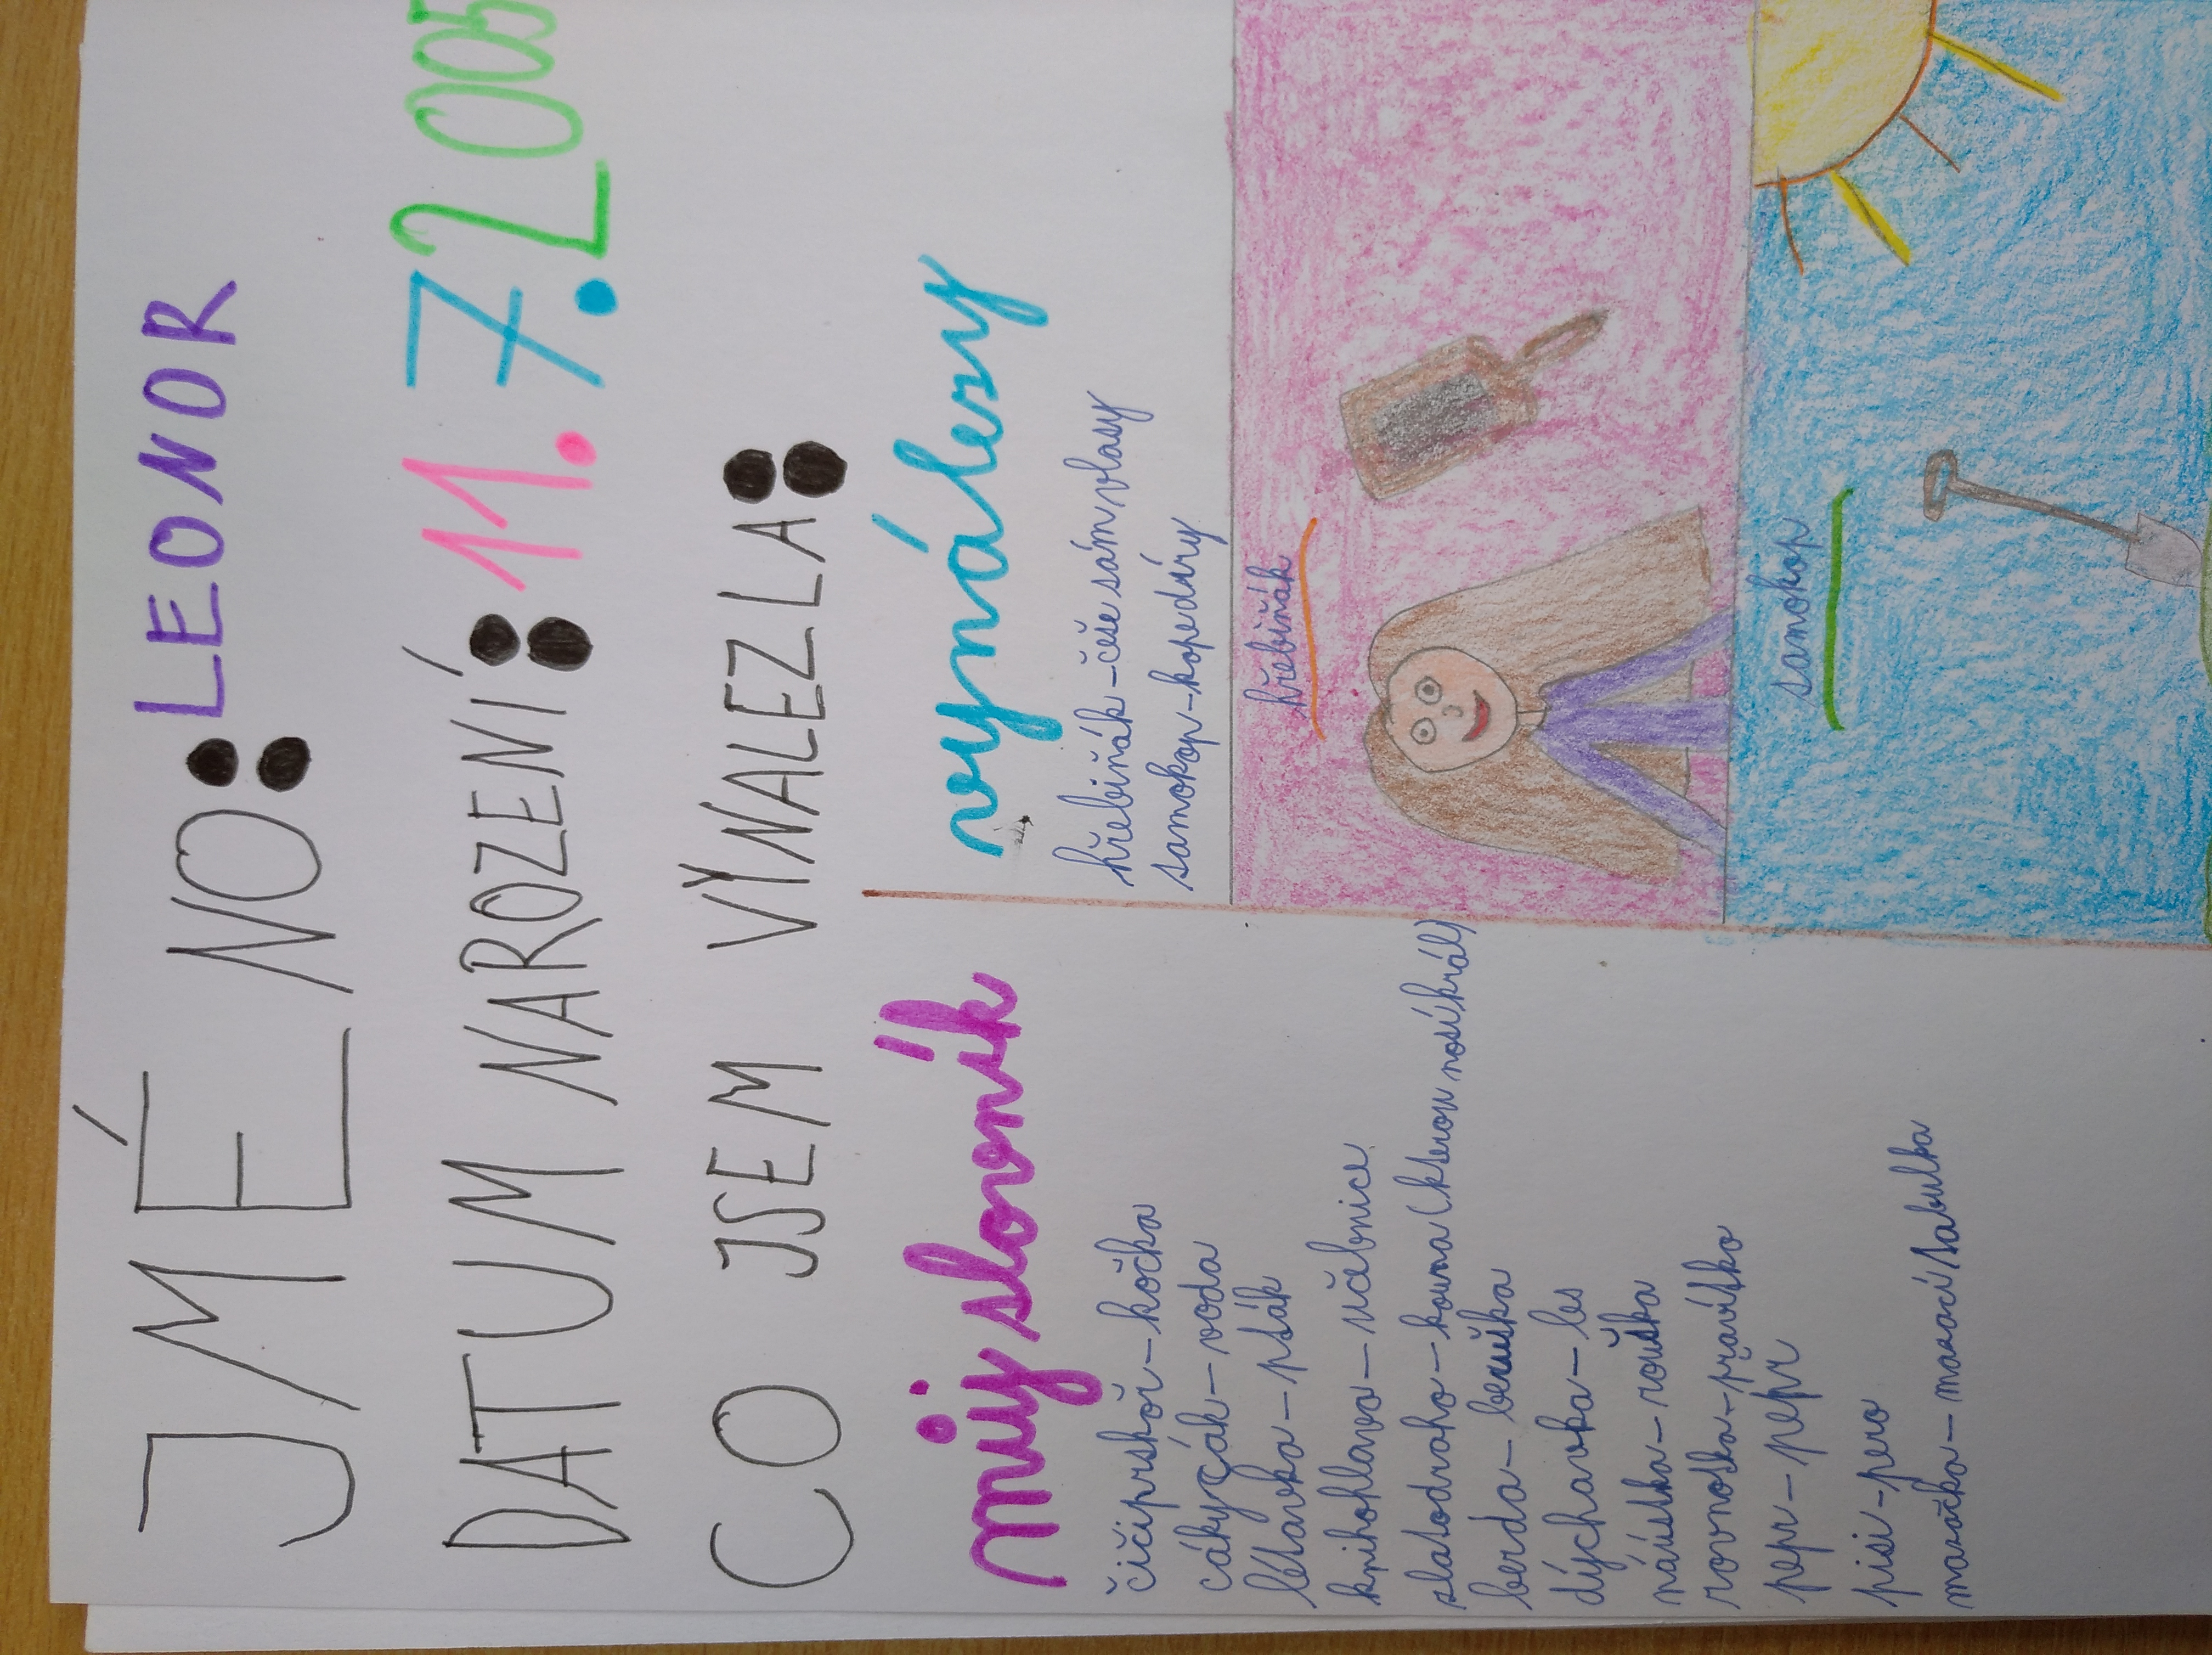 JMÉNO: LEONOR
DATUM NAROZENÍ: 11.7.2005
CO JSEM VYNALEZLA:
můj slovník
čičiprskoř – kočka
cákyčák – voda
létavka – pták
knihohlava – učebnice
zlatodraho – kouna (kterou nosí král)
berda – beruška
dýchavka – les
náústka – rouška
rovnotka – pravítko
pepr – pepř
pisi – pero
mazačka – mazací tabulka
vynálezy
hřebiňák – češe sám vlasy
samokop – kope díry
hřebiňák
samokop